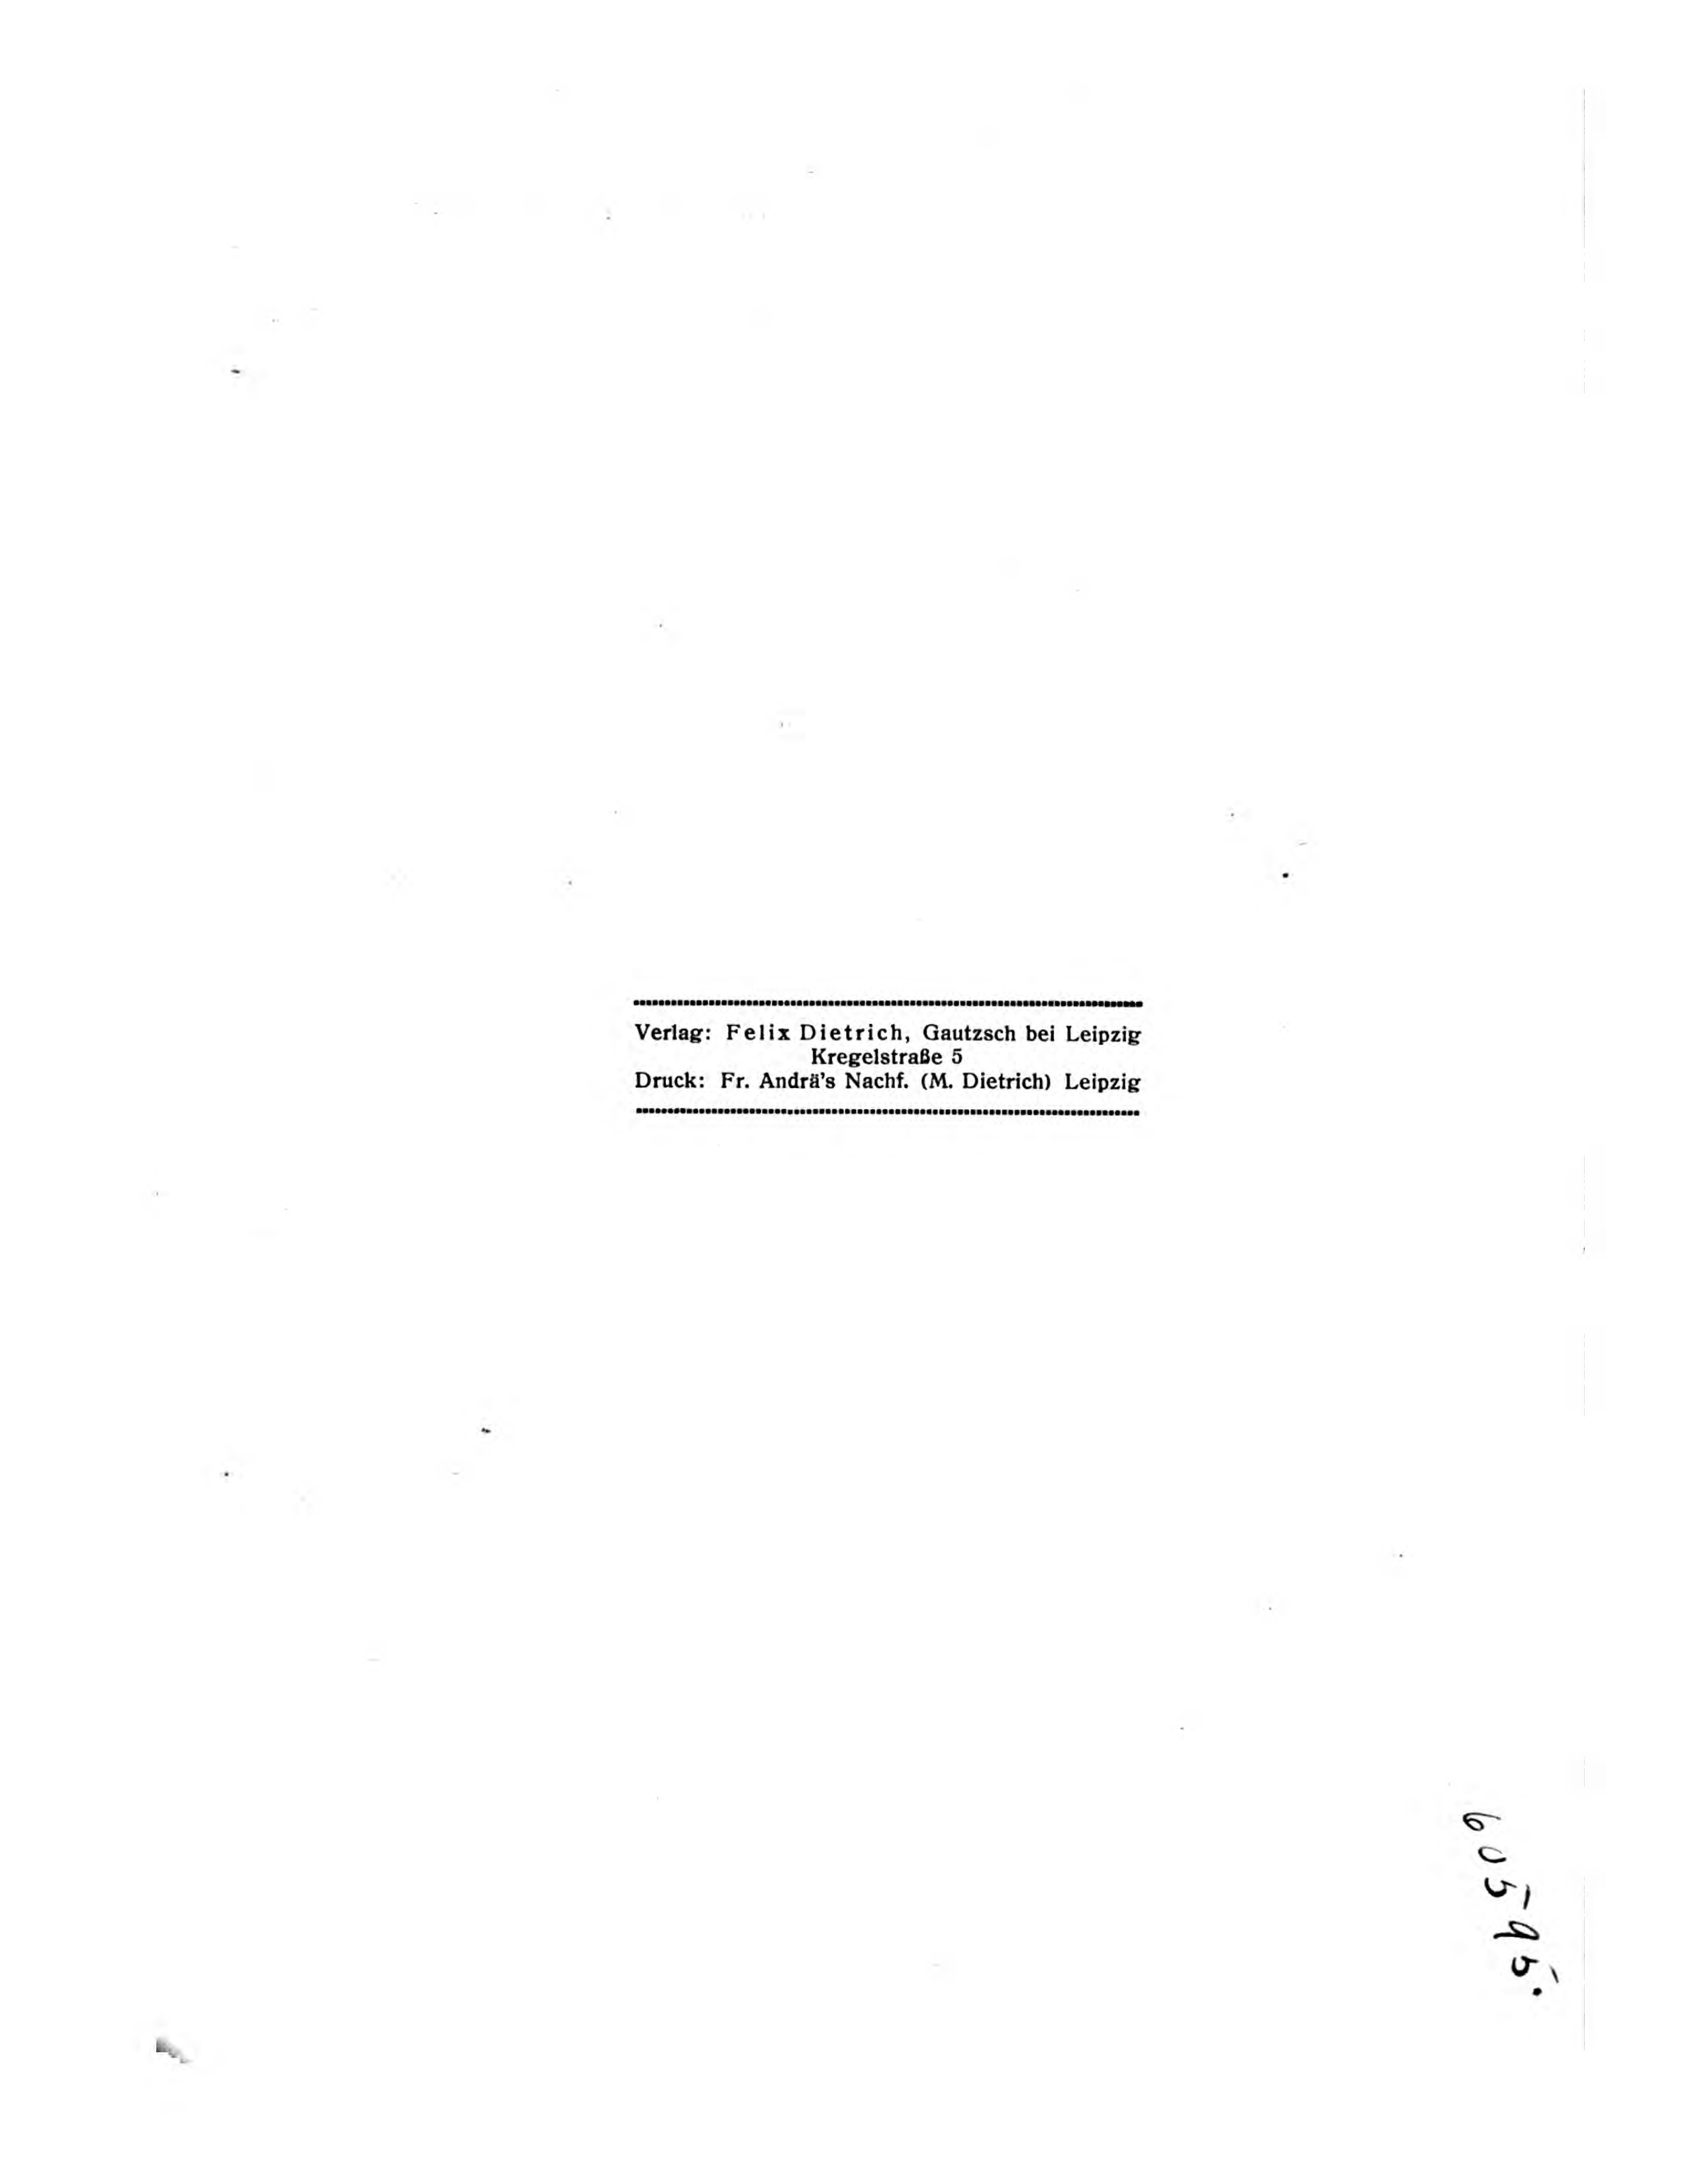 Verlag: Felix Dietrich, Gautzsch bei Leipzig
Kregelstraße 5
Druck: Fr. Andrä's Nachf. (M. Dietrich) Leipzig
60595.